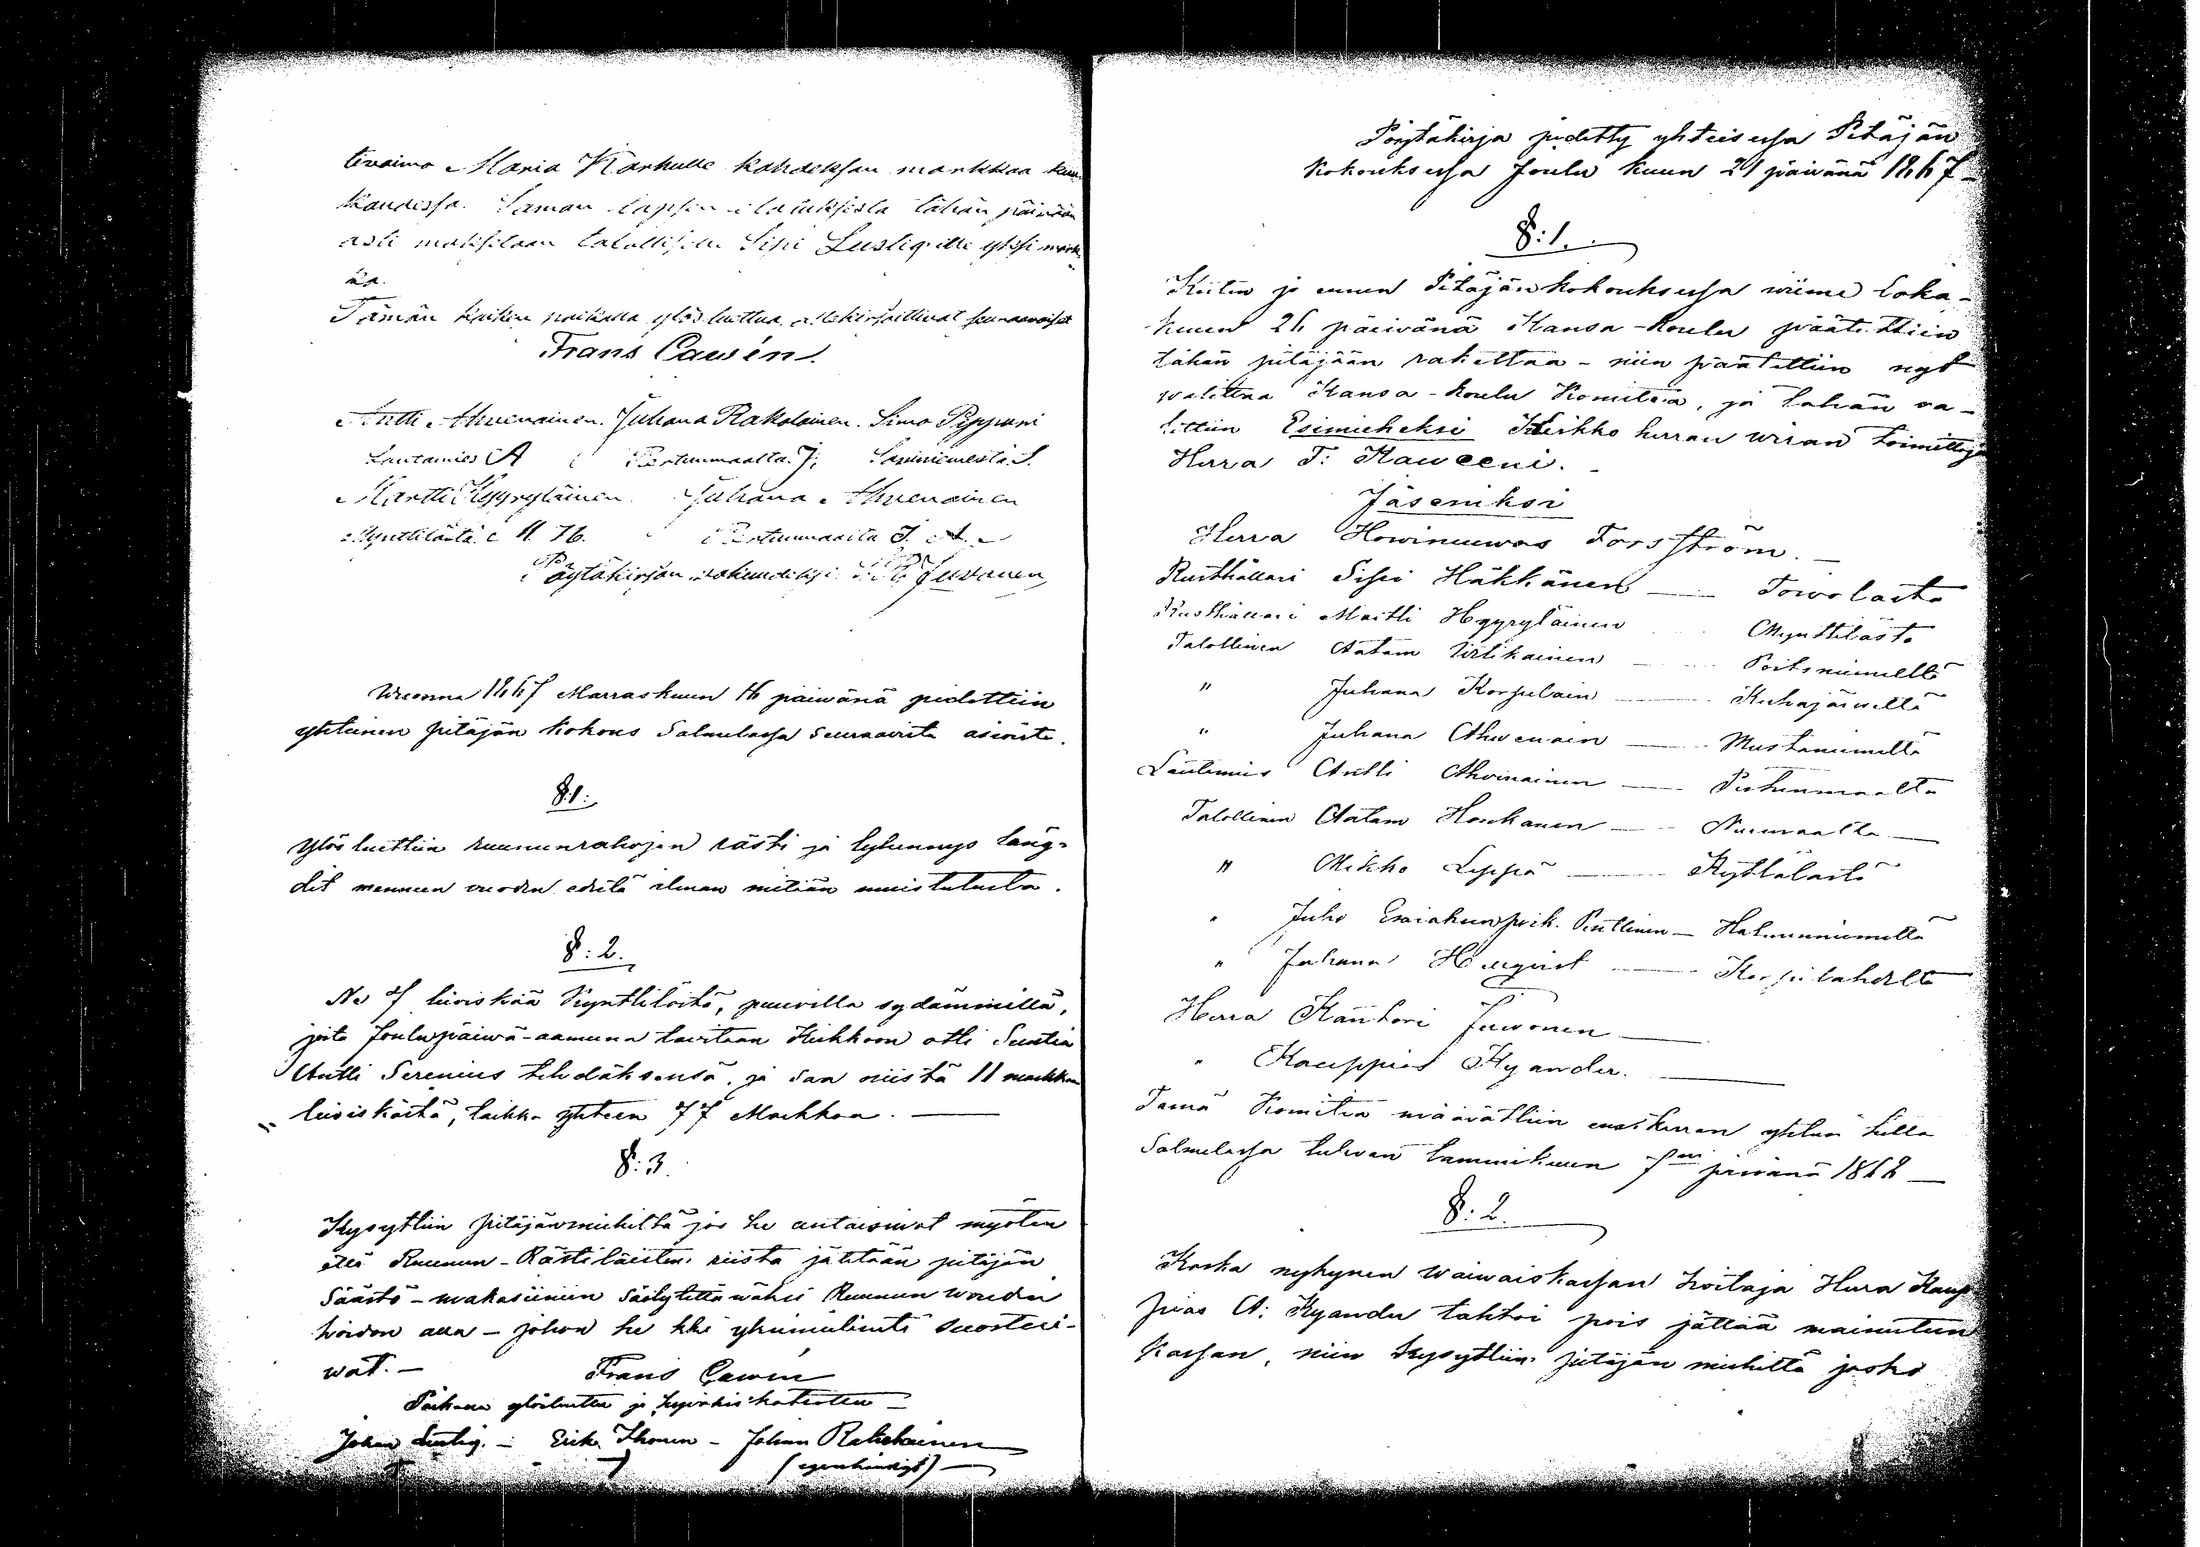 tivaimo Maria Karhulle kahdeksan markkaa kuu-
kaudessa. Saman lapsen elatuksista tähän päivään
asti maksetaan talolliselle Sipi Lustigille yksi mark-
ka.
Tämän kaiken paikalla ylösluettua allekirjoittivat seuraavaiset
Frans Cawén.
Antti Ahvenainen. Juhana Rakolainen. Simo Pypponi
Lautamies A Pertunmaalta. J; Saviniemestä S.
Martti Hyyryläinen. Juhana Ahvenainen
Mynttilästä M. H. Pertunmaalta J. A.
Pöytäkirjan vakuudeksi Juvonen
Wuonna 1867 Marraskuun 16 päiwänä pidettiin
yhteinen pitäjän kokous Salmelassa seuraavista asioista.
§:1:
Ylös luettiin ruununrahojen rästi ja lyhennys läng-
dit menneen vuoden edestä ilman mitään muistutusta.
§: 2.
Ne 7 leiviskää kynttilöitä, puuvilla sydämmillä,
joita Joulupäiwä-aamuna tarvitaan Kirkkoon otti Suntia
Antti Serenius tehdäksensä, ja saa niistä 11 markkaa
" leiviskästä, taikka yhteen 77 Markkaa.
§: 3.
Kysyttiin pitäjänmiehiltä jos he antaisivat myöten
että Ruunun-Rästiläisten riista jätetään pitäjän
Säästö-makasiiniin säilytettäwäksi Ruunun woudin
hoidon alla - johon he kki yksimielisesti suostui-
wat. -
Frans Cawén
Paikalla ylösluettu ja hyväksi katsottu
Johan Lustig. - Erik Ikonen - Johan Rakolainen
(egenhändigt)
Pöytäkirja pidetty yhteisessä Pitäjän
kokouksessa Joulu kuun 21 päivänä 1867 -
§:1.
Kuten jo ennen Pitäjänkokouksessa wiime Loka-
kuun 26 päivänä Kansa-koulu päätettiin
tähän pitäjään rakettaa - niin päätettiin nyt
walittaa Kansa-koulu Komitea, ja tähän va-
littiin Esimieheksi Kirkko herran wiran toimittaja
Herra F: Kaweeni.
Jäseniksi
Herra Howineuwos Forsström.
Rusthållari Sipi Häkkänen — Toivolasta
Rusthållari Martti Hyyryläinen — Mynttilästä
Talollinen Aatam Virtikainen — Poitsniemeltä
" Juhana Korpelain — Kuhajärveltä
" Juhana Ahvenain — Mustaniemeltä
Lautamies Antti Ahvenainen — Pertunmaalta
Talollinen Aatam Honkanen — Nurmaalta
" Mikko Leppä — Kyttälästä
" Juho Esaiakunpoik. Penttinen — Halmeniemeltä
" Juhana Hougvist — Korpilahdelta
Herra Kanttori Juvonen
" Kauppias Kyander.
Tämä Komitea määrättiin ensikerran yhteen tulla
Salmelassa tulevan tammikuun 7en päivänä 1868
§: 2.
Koska nykynen waiwaiskassan hoitaja Herra Kaup-
pias A: Kyander tahtoi pois jättää mainitun
Kassan, niin kysyttiin pitäjän miehiltä josko